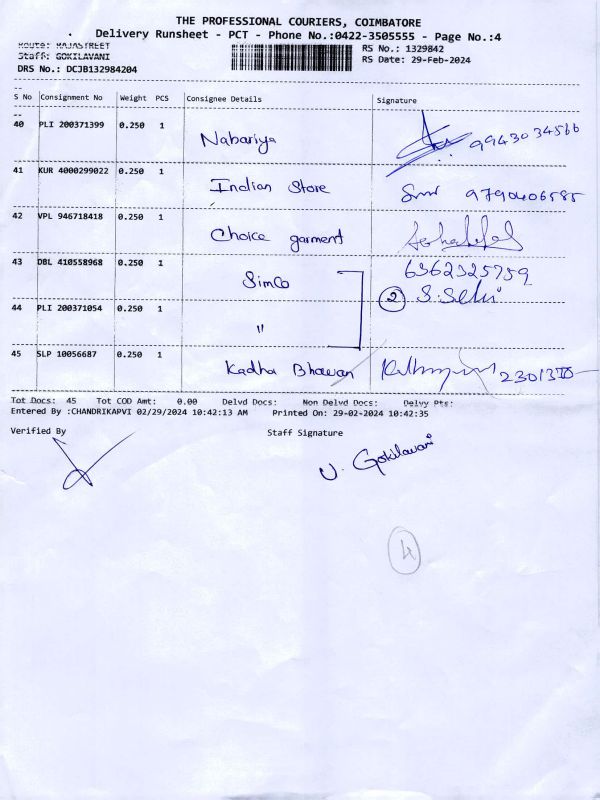 THE PROFESSIONAL COURIERS, COIMBATORE
Delivery Runsheet - PCT - Phone No.:0422-3505555 - Page No.:4
Route: RAJASTREET RS No.: 1329842
Staff: GOKILAVANI RS Date: 29-Feb-2024
DRS No.: DCJB132984204
S No Consignment No Weight PCS Consignee Details Signature
40 PLI 200371399 0.250 1 Nabariya 9943034566
41 KUR 4000299022 0.250 1 Indian Store 9790406585
42 VPL 946718418 0.250 1 Choice garment
43 DBL 410558968 0.250 1 SimCo 6362325759
2 S. Selvi
44 PLI 200371054 0.250 1 "
45 SLP 10056687 0.250 1 Kadha Bhavan
Tot Docs: 45 Tot COD Amt: 0.00 Delvd Docs: Non Delvd Docs: Delvy Pts:
Entered By :CHANDRIKAPVI 02/29/2024 10:42:13 AM Printed On: 29-02-2024 10:42:35
Verified By Staff Signature
V. Gokilavani
4